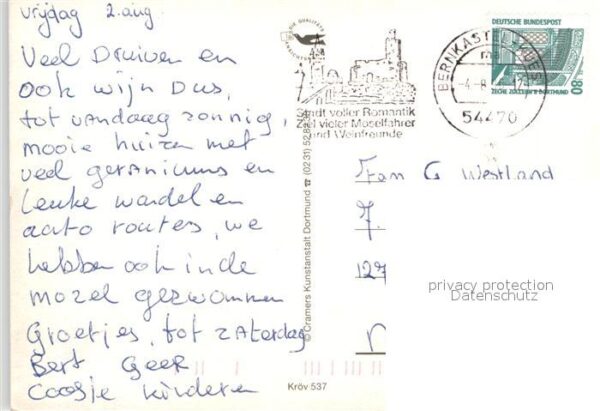 vrijdag 2. aug.
Veel Druiven en
ook wijn Dus,
tot vandaag zonnig,
mooie huizen met
veel geraniums en
Leuke wandel en
auto routes, we
hebben ook in de
mozel gezwommen
Groetjes, tot zaterdag
Bert Geer
Coosje kinderen
Stadt voller Romantik
Ziel vieler Moselfahrer
und Weinfreunde
BERNKASTEL-KUES
54470
DEUTSCHE BUNDESPOST
80
ZECHE ZOLLERN II DORTMUND
Fam G Westland
7.
127
privacy protection
Datenschutz
© Cramers Kunstanstalt Dortmund ☎ (0231)
Kröv 537